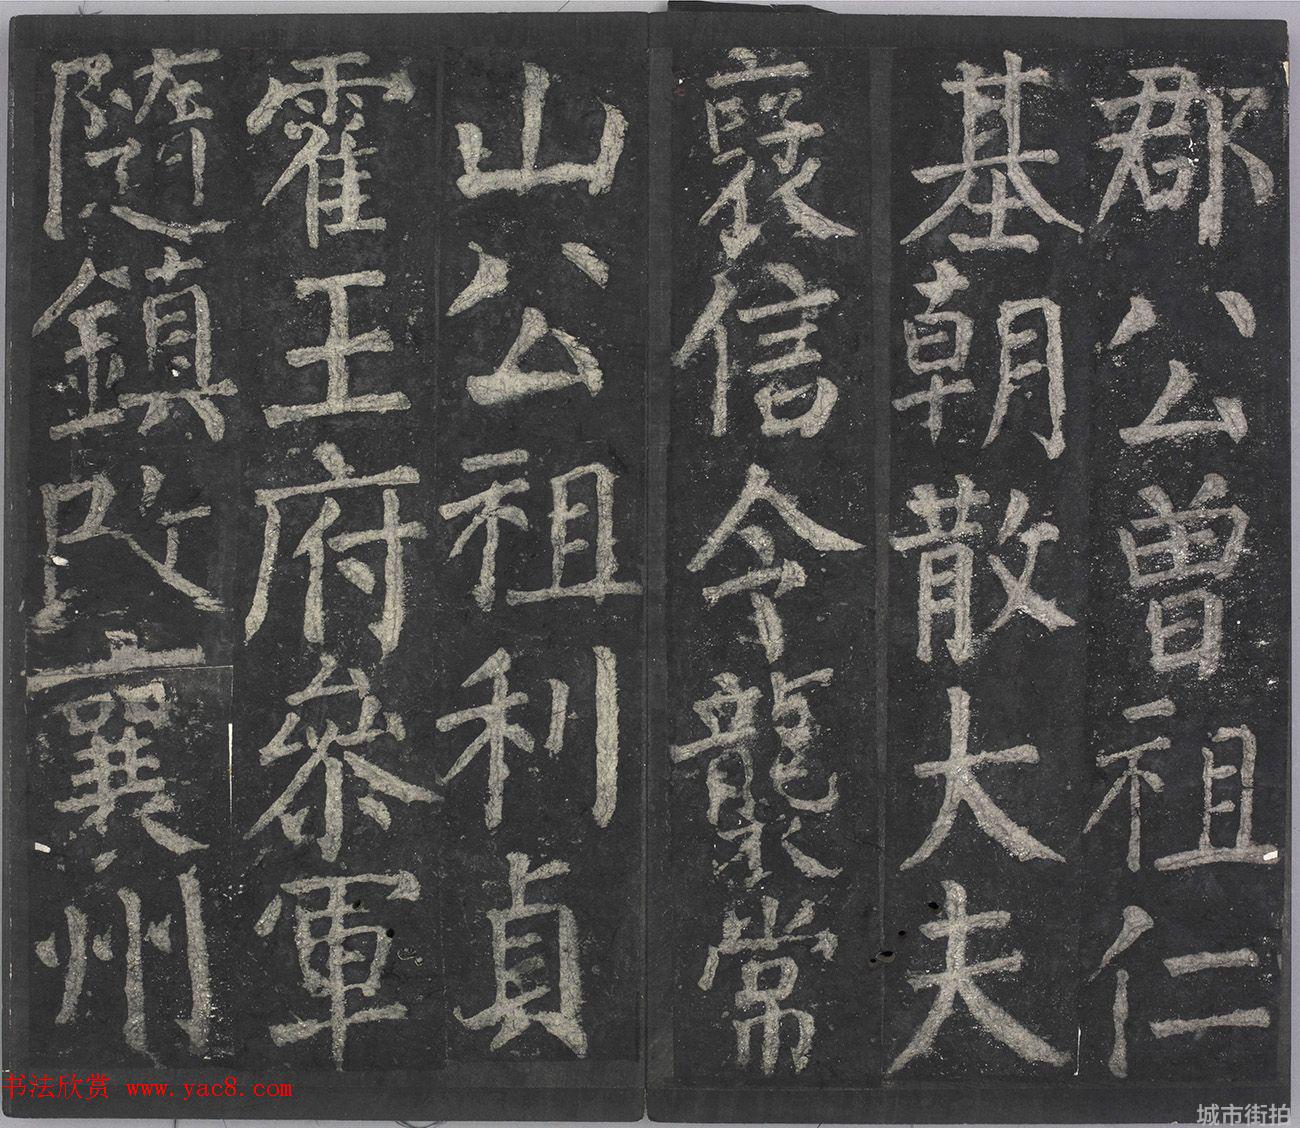 郡公曾祖仁
基朝散大夫
襃信令襲常
山公祖利貞
霍王府叅軍
隨鎮改襄州
书法欣赏 www.yac8.com
城市街拍